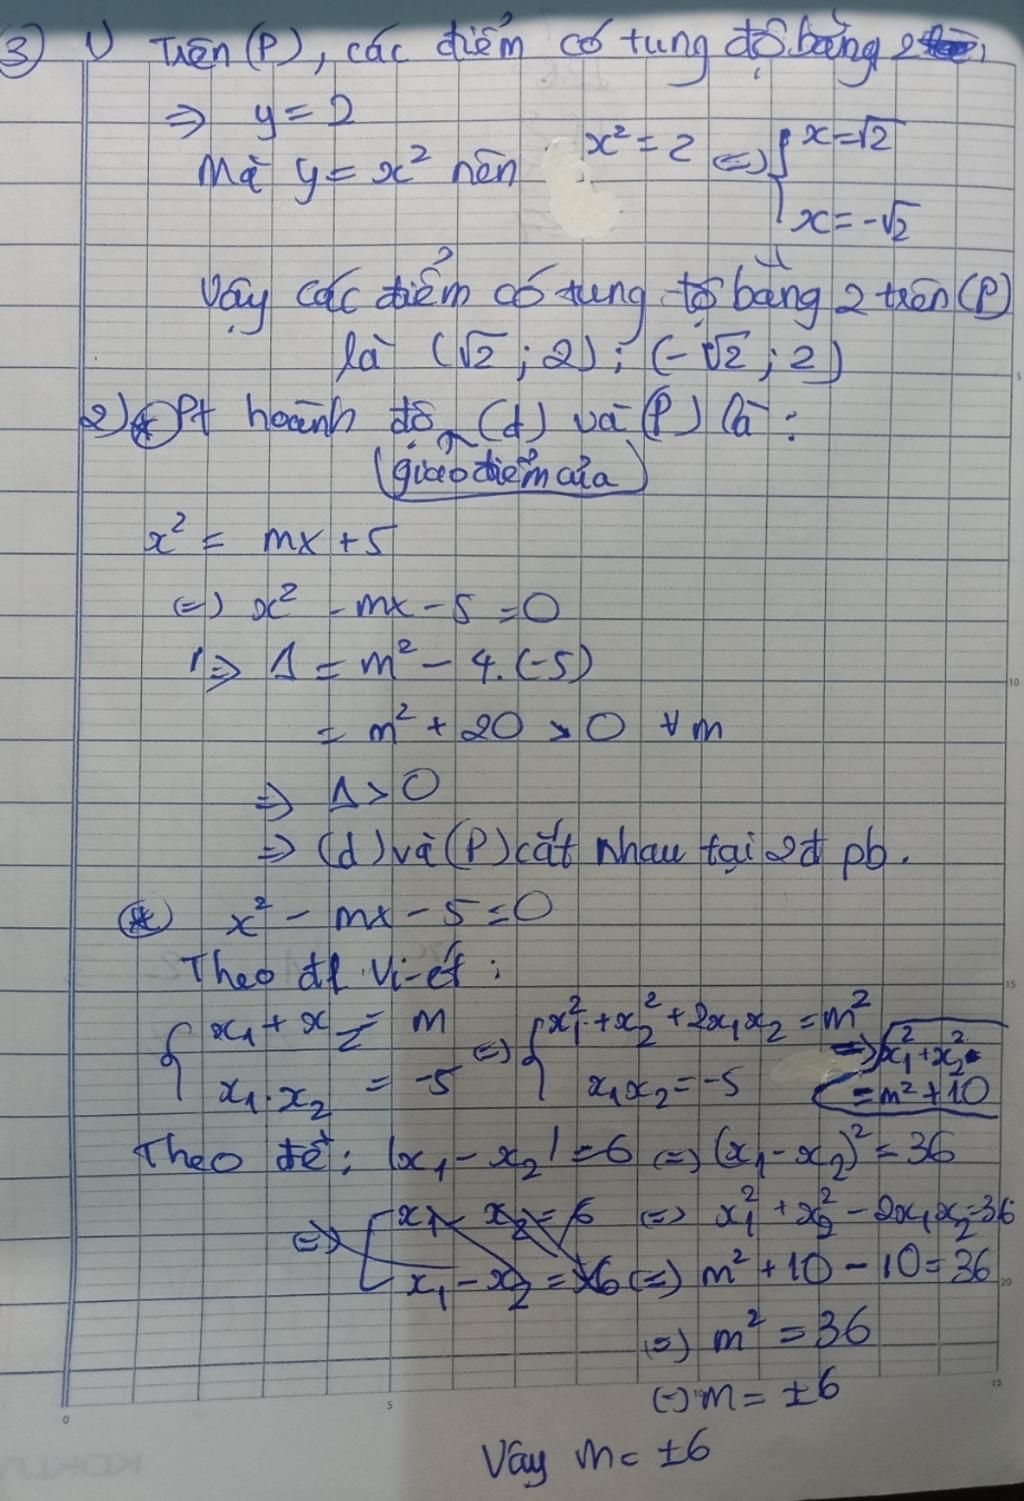 3) 1) Trên (P), các điểm có tung độ bằng 2
=> y = 2
Mà y = x² nên x² = 2 <=> { x = √2
x = -√2
Vậy các điểm có tung độ bằng 2 trên (P)
là (√2 ; 2) ; (-√2 ; 2)
2) * Pt hoành độ (d) và (P) là :
(giao điểm của)
x² = mx + 5
<=> x² - mx - 5 = 0
=> Δ = m² - 4.(-5)
= m² + 20 > 0 ∀m
=> Δ > 0
=> (d) và (P) cắt nhau tại 2đ pb.
* x² - mx - 5 = 0
Theo đl Vi-ét :
{ x₁ + x₂ = m <=> { x₁² + x₂² + 2x₁x₂ = m² => x₁² + x₂²
x₁.x₂ = -5 x₁x₂ = -5 = m² + 10
Theo đề : |x₁ - x₂| = 6 <=> (x₁ - x₂)² = 36
<=> [ x₁ - x₂ = 6 <=> x₁² + x₂² - 2x₁x₂ = 36
x₁ - x₂ = -6 <=> m² + 10 - 10 = 36
<=> m² = 36
<=> m = ±6
Vậy m = ±6